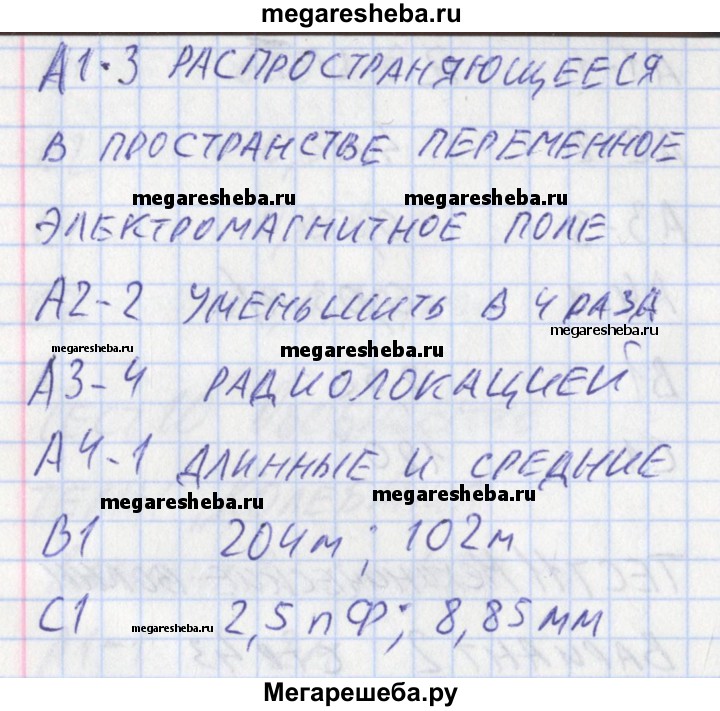 megaresheba.ru
А1·3 РАСПРОСТРАНЯЮЩЕЕСЯ
В ПРОСТРАНСТВЕ ПЕРЕМЕННОЕ
megaresheba.ru megaresheba.ru
ЭЛЕКТРОМАГНИТНОЕ ПОЛЕ
А2-2 УМЕНЬШИТЬ В 4 РАЗА
megaresheba.ru
megaresheba.ru megaresheba.ru
А3-4 РАДИОЛОКАЦИЕЙ
А4-1 ДЛИННЫЕ И СРЕДНИЕ
megaresheba.ru megaresheba.ru
В1 204м; 102м
С1 2,5 пФ; 8,85мм
megaresheba.ru
Мегарешеба.ру